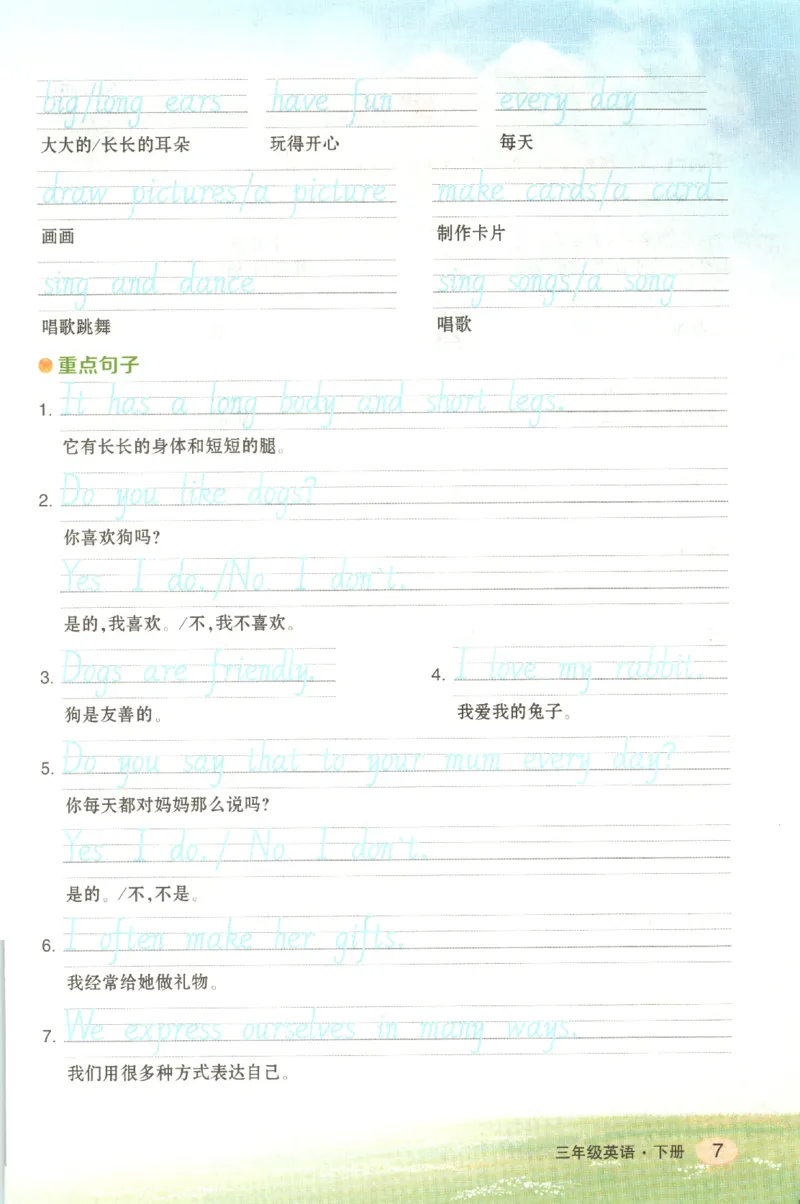 big/long ears have fun every day
大大的/长长的耳朵 玩得开心 每天
draw pictures/a picture make cards/a card
画画 制作卡片
sing and dance sing songs/a song
唱歌跳舞 唱歌
重点句子
1. It has a long body and short legs.
它有长长的身体和短短的腿。
2. Do you like dogs?
你喜欢狗吗?
Yes I do./No I don't.
是的,我喜欢。/不,我不喜欢。
3. Dogs are friendly. 4. I love my rabbit.
狗是友善的。 我爱我的兔子。
5. Do you say that to your mum every day?
你每天都对妈妈那么说吗?
Yes I do./ No I don't.
是的。/不,不是。
6. I often make her gifts.
我经常给她做礼物。
7. We express ourselves in many ways.
我们用很多种方式表达自己。
三年级英语·下册 7